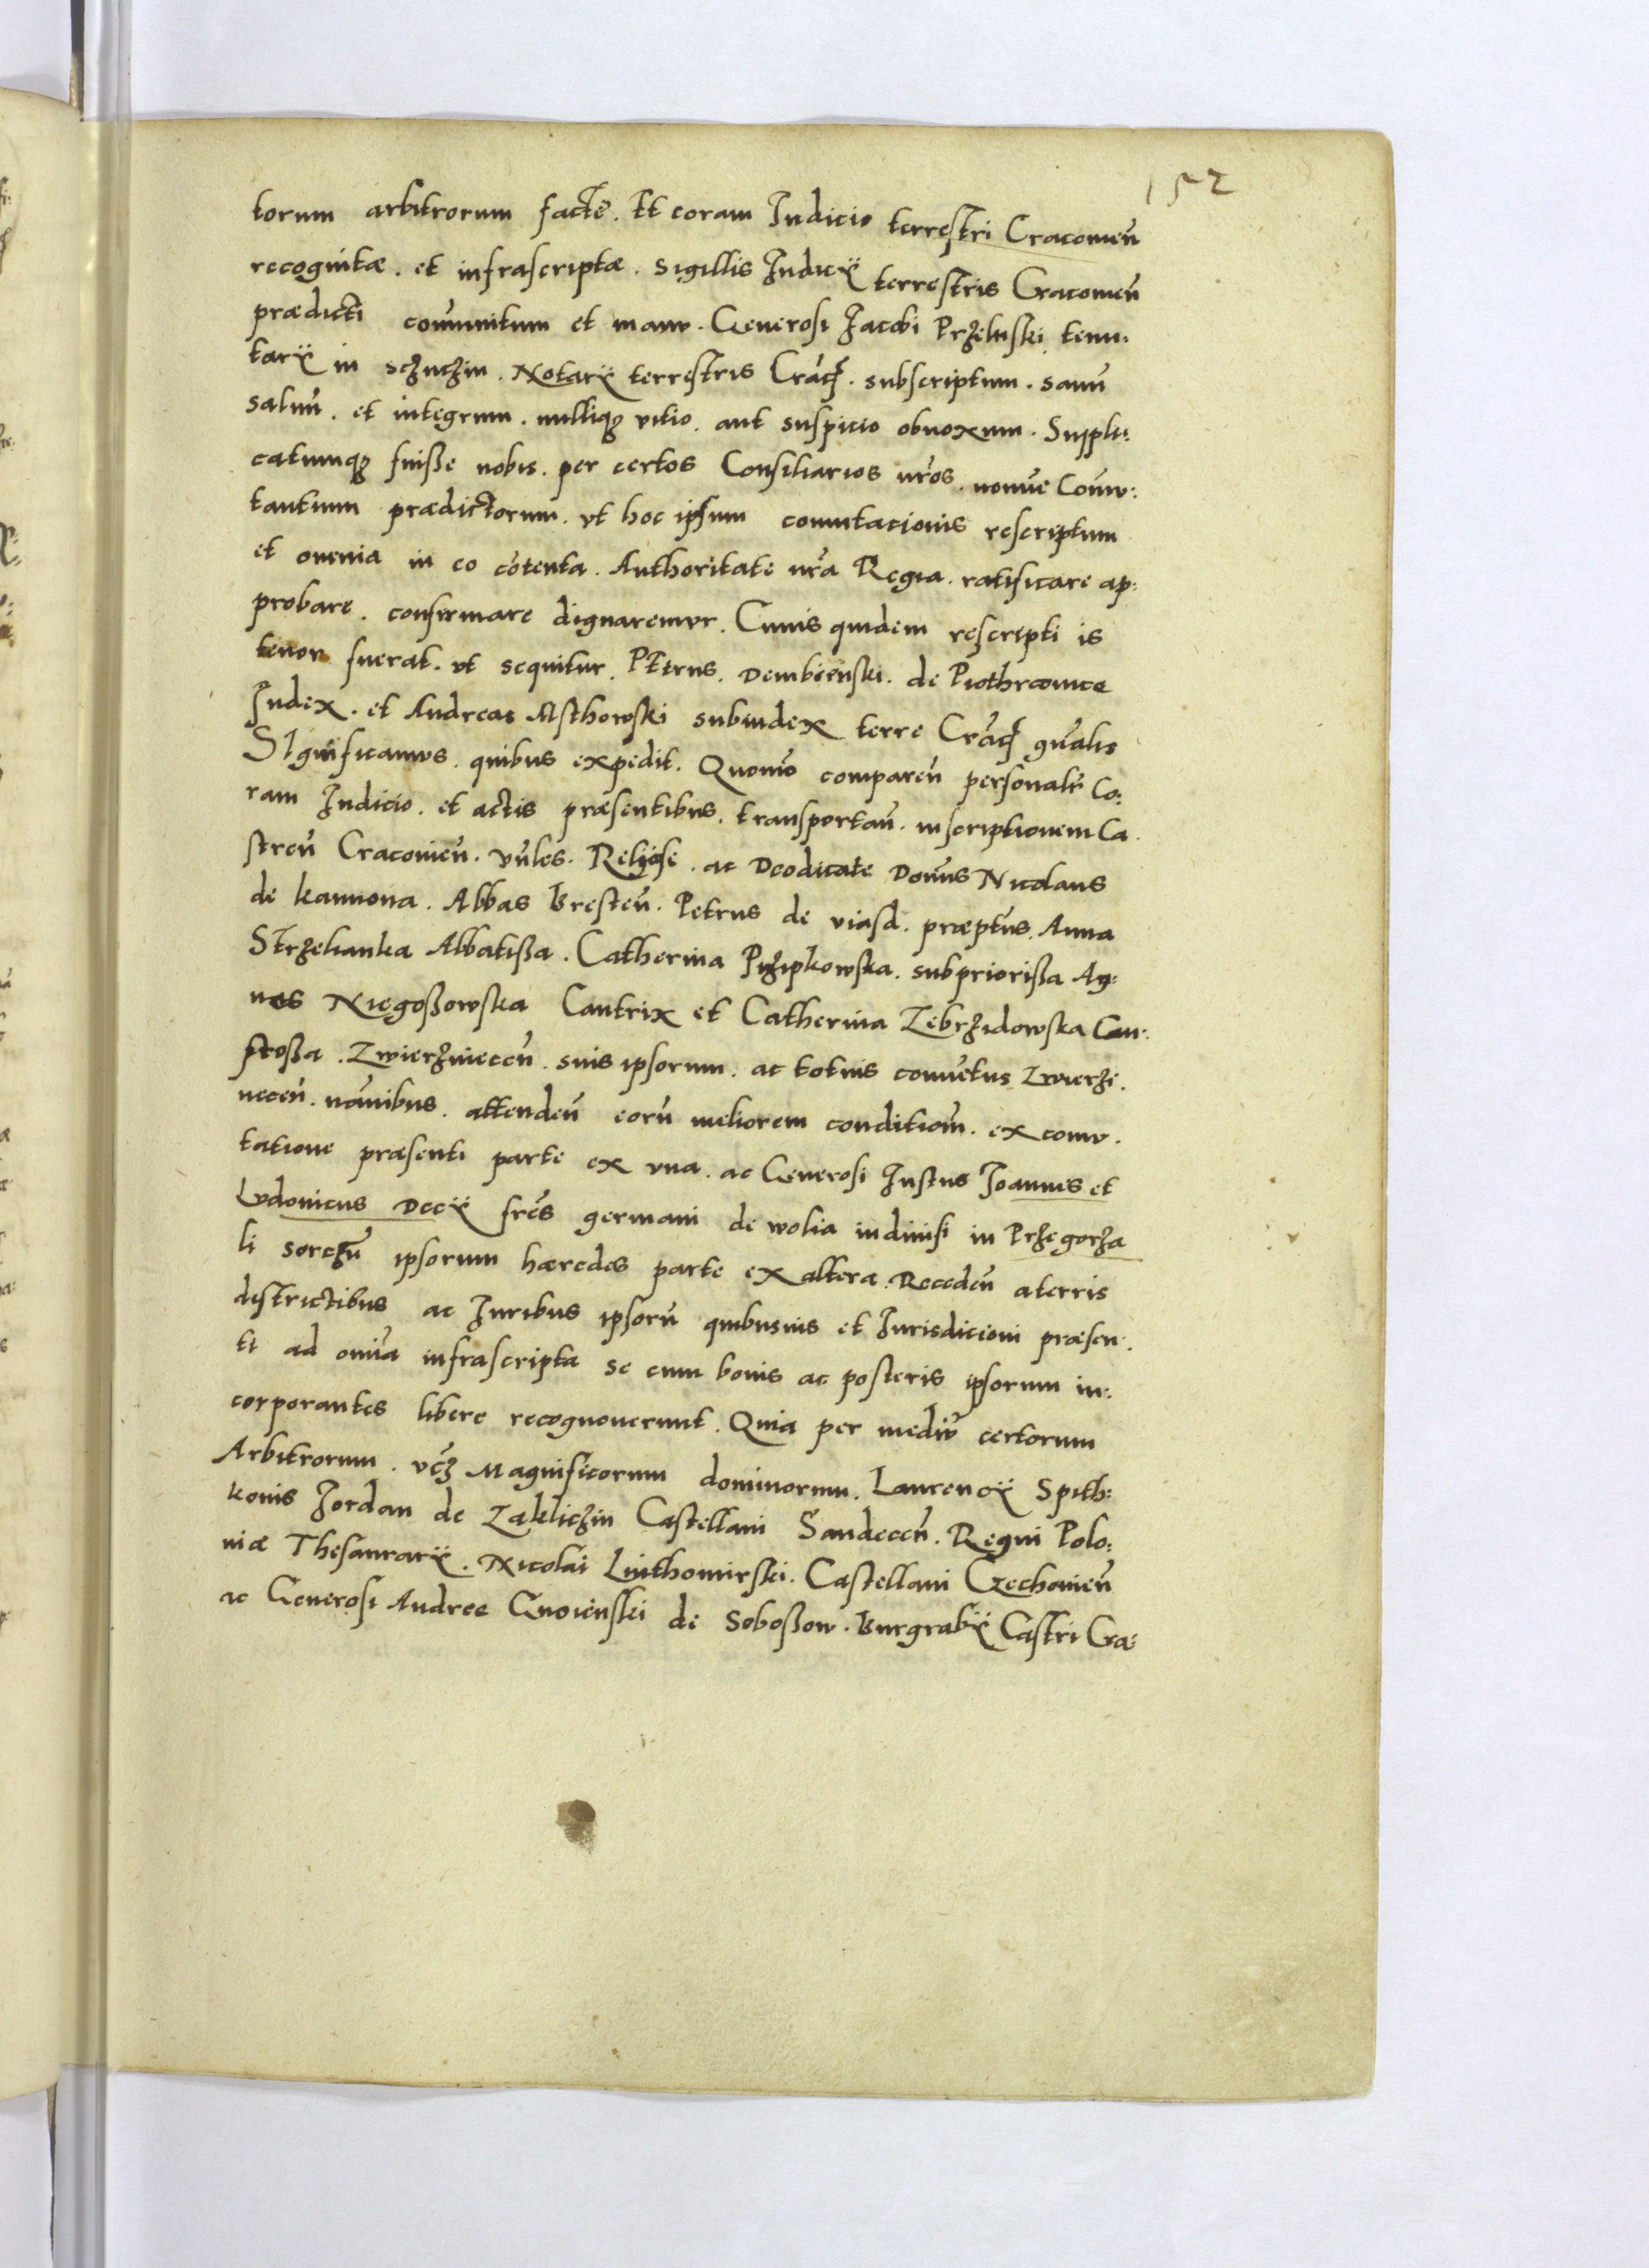 152
torum arbitrorum facte. Et coram Iudicio terrestri Cracouieñ
recognitæ. et infrascriptæ. sigillis Iudicÿ terrestris Cracouieñ
prædicti com̃unitum et manu. Generosi Iacobi Przeluski tenu:
tarÿ in sczuczin. Notarÿ terrestris Crac̃. subscriptum. sanũ
saluũ. et integrum. nulliqꝫ vitio. aut suspicio obnoxium. Suppli:
catumqꝫ fuisse nobis. per certos Consiliarios nr̃os. nomĩe Com̃u:
tantium prædictorum. vt hoc ipsum comutacionis rescriptum
et omnia in eo cõtenta. Authoritate nr̃a Regia. ratificare ap:
probare. confirmare dignaremur. Cuius quidem rescripti is
tenor fuerat. vt sequitur. PEtrus. Dembienski. de Piothrcouice
Iudex. et Andreas Msthowski subiudex terre Crac̃ gñalis
SIgnificamus. quibus expedit. Quomõ compareñ personalĩ Co:
ram Iudicio. et actis præsentibus. transportañ. inscriptionem Ca.
streñ Cracouieñ. vñles. Religiõse. ac Deodicate Domũs Nicolaus
de kamiona. Abbas Bresteñ. Petrus de viasd. præptũs. Anna
Strzelianka Albatissa. Catherina Pizipkowska. subpriorissa Ag:
nes Niegossowska Cantrix et Catherina Zebrzidowska Cun:
stossa. Zwierzinieceñ. suis ipsorum. ac totius conuẽtus Zwierzi.
neceñ. nõnibus. attendeñ eorũ meliorem conditioñ. ex comu.
tatione præsenti parte ex vna. ac Generosi Iustus Ioannes et
Ludouicus Decÿ fr̃es germani de wolia indiuisi in Przegorza
li sorczũ ipsorum hæredes parte ex altera. Recedeñ a terris
districtibus ac Iuribus ipsorũ quibusuis et Iurisdicioni præsen.
ti ad oniã infrascripta se cum bonis ac posteris ipsorum in:
corporantes libere recognouerunt. Quia per mediũ certorum
Arbitrorum. vcꝫ Magnificorum dominorum. Laurencÿ Spith:
konis Iordan de Zakliczin Castellani Sandeceñ. Regni Polo:
niæ Thesaurarÿ. Nicolai Liuthomirski. Castellani Czechouieñ
ac Generosi Andree Gnoienski de Sobossow. Burgrabÿ Castri Cra: